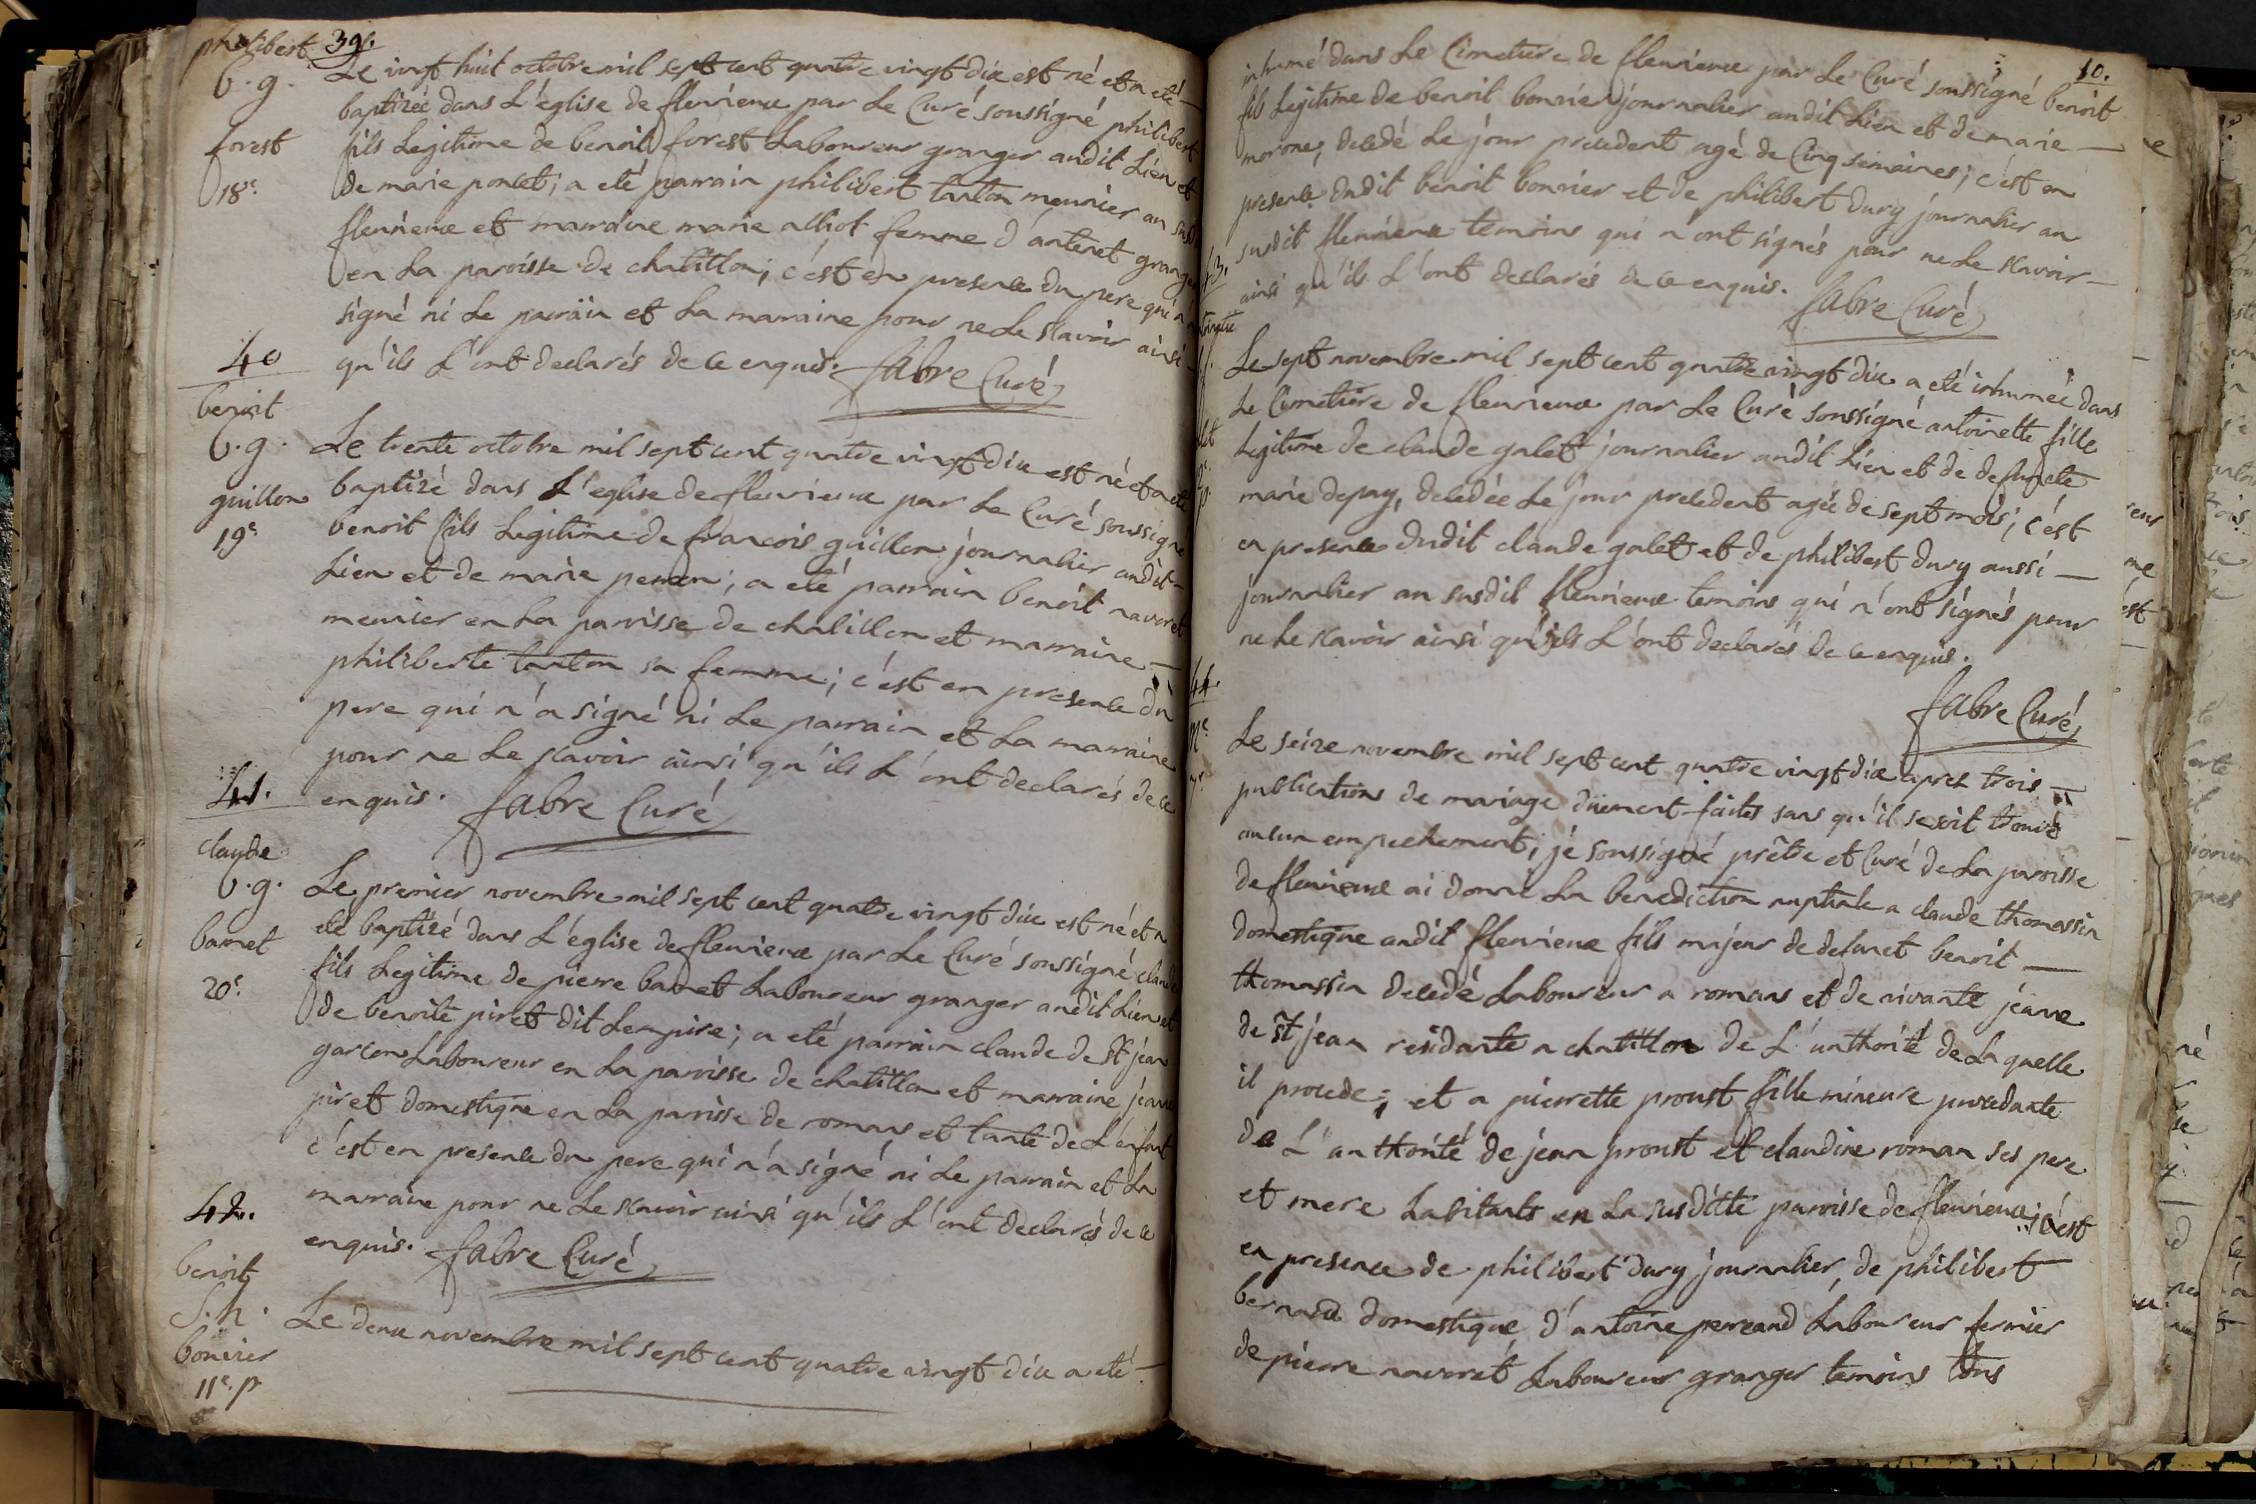 philibert 39.
b. g.
forest
18e.
Le vingt huit octobre mil sept cent quatre vingt dix est né et a eté —
baptizée dans L'église de fleurieux par Le Curé soussigné philibert
fils Legitime de benoit forest Laboureur granger audit Lieu et
de marie poncet; a eté parrain philibert tanton meunier au susd
fleurieux et marraine marie alliot femme d'antenet granger
en La paroisse de chatillon; c'est en presence du pere qui n'a
signé ni Le parrain et La marraine pour ne Le scavoir ainsi
qu'ils L'ont declarés de ce enquis. fabre Curé
40
benoit
b. g.
guillon
19e
Le trente octobre mil sept cent quatre vingt dix est né et a eté
baptizé dans L'eglise de fleurieux par Le Curé soussigné
benoit fils Legitime de francois guillon journalier audit —
Lieu et de marie perron; a eté parrain benoit naveret
meunier en La paroisse de chatillon et marraine —
philiberte tanton sa femme; c'est en presence du
pere qui n'a signé ni Le parrain et La marraine
pour ne Le scavoir ainsi qu'ils L'ont declarés de ce
enquis. fabre Curé
41.
claude
b. g.
barret
20e.
Le premier novembre mil sept cent quatre vingt dix est né et a
eté baptizé dans L'église de fleurieux par Le Curé soussigné claude
fils Legitime de pierre barret Laboureur granger audit Lieu et
de benoite piret dit Lempire; a eté parrain claude de St jean
garcon Laboureur en La paroisse de chatillon et marraine jeanne
piret domestique en La paroisse de romans et tante de L'enfant
c'est en presence du pere qui n'a signé ni Le parrain et La
marraine pour ne Le scavoir ainsi qu'ils L'ont declarés de ce
enquis. fabre Curé
42.
benoit
S. h.
bonvier
11e. p
Le deux novembre mil sept cent quatre vingt dix a eté —
10.
inhumé dans Le Cimetiere de fleurieux par Le Curé soussigné benoit
fils Legitime de benoit bonvier journalier audit Lieu et de marie —
morone, decedé Le jour precedent agé de Cinq semaines; c'est en
presence dudit benoit bonvier et de philibert dury journalier au
susdit fleurieux temoins qui n'ont signés pour ne Le scavoir —
ainsi qu'ils L'ont declarés de ce enquis. fabre Curé
Le sept novembre mil sept cent quatre vingt dix a eté inhumée dans
Le Cimetière de fleurieux par Le Curé soussigné antoinette fille
Legitime de claude galet journalier audit Lieu et de defuncte
marie depay, decedée Le jour precedent agée de sept mois; c'est
en presence dudit claude galet et de philibert dury aussi —
journalier au susdit fleurieux temoins qui n'ont signés pour
ne Le scavoir ainsi qu'ils L'ont declarés de ce enquis.
fabre Curé
44
Le seize novembre mil sept cent quatre vingt dix apres trois —
publications de mariage dûement faites sans qu'il se soit trouvé
aucun empechement; je soussigné prêtre et Curé de La paroisse
de fleurieux ai donné La benediction nuptiale a claude thomassin
domestique audit fleurieux fils majeur de defunct benoit —
thomassin decedé Laboureur a romans et de vivante jeanne
de st jean residante a chatillon de L'authorité de Laquelle
il procede; et a pierrette proust fille mineure procedante
de L'authorité de jean proust et claudine roman ses pere
et mere habitants en La susditte paroisse de fleurieux; c'est
en presence de philibert dury journalier, de philibert
bernard domestique d'antoine perraud Laboureur fermier
de pierre naveret Laboureur granger temoins tous